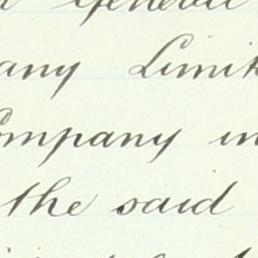 General
any Limit
ompany in
the said